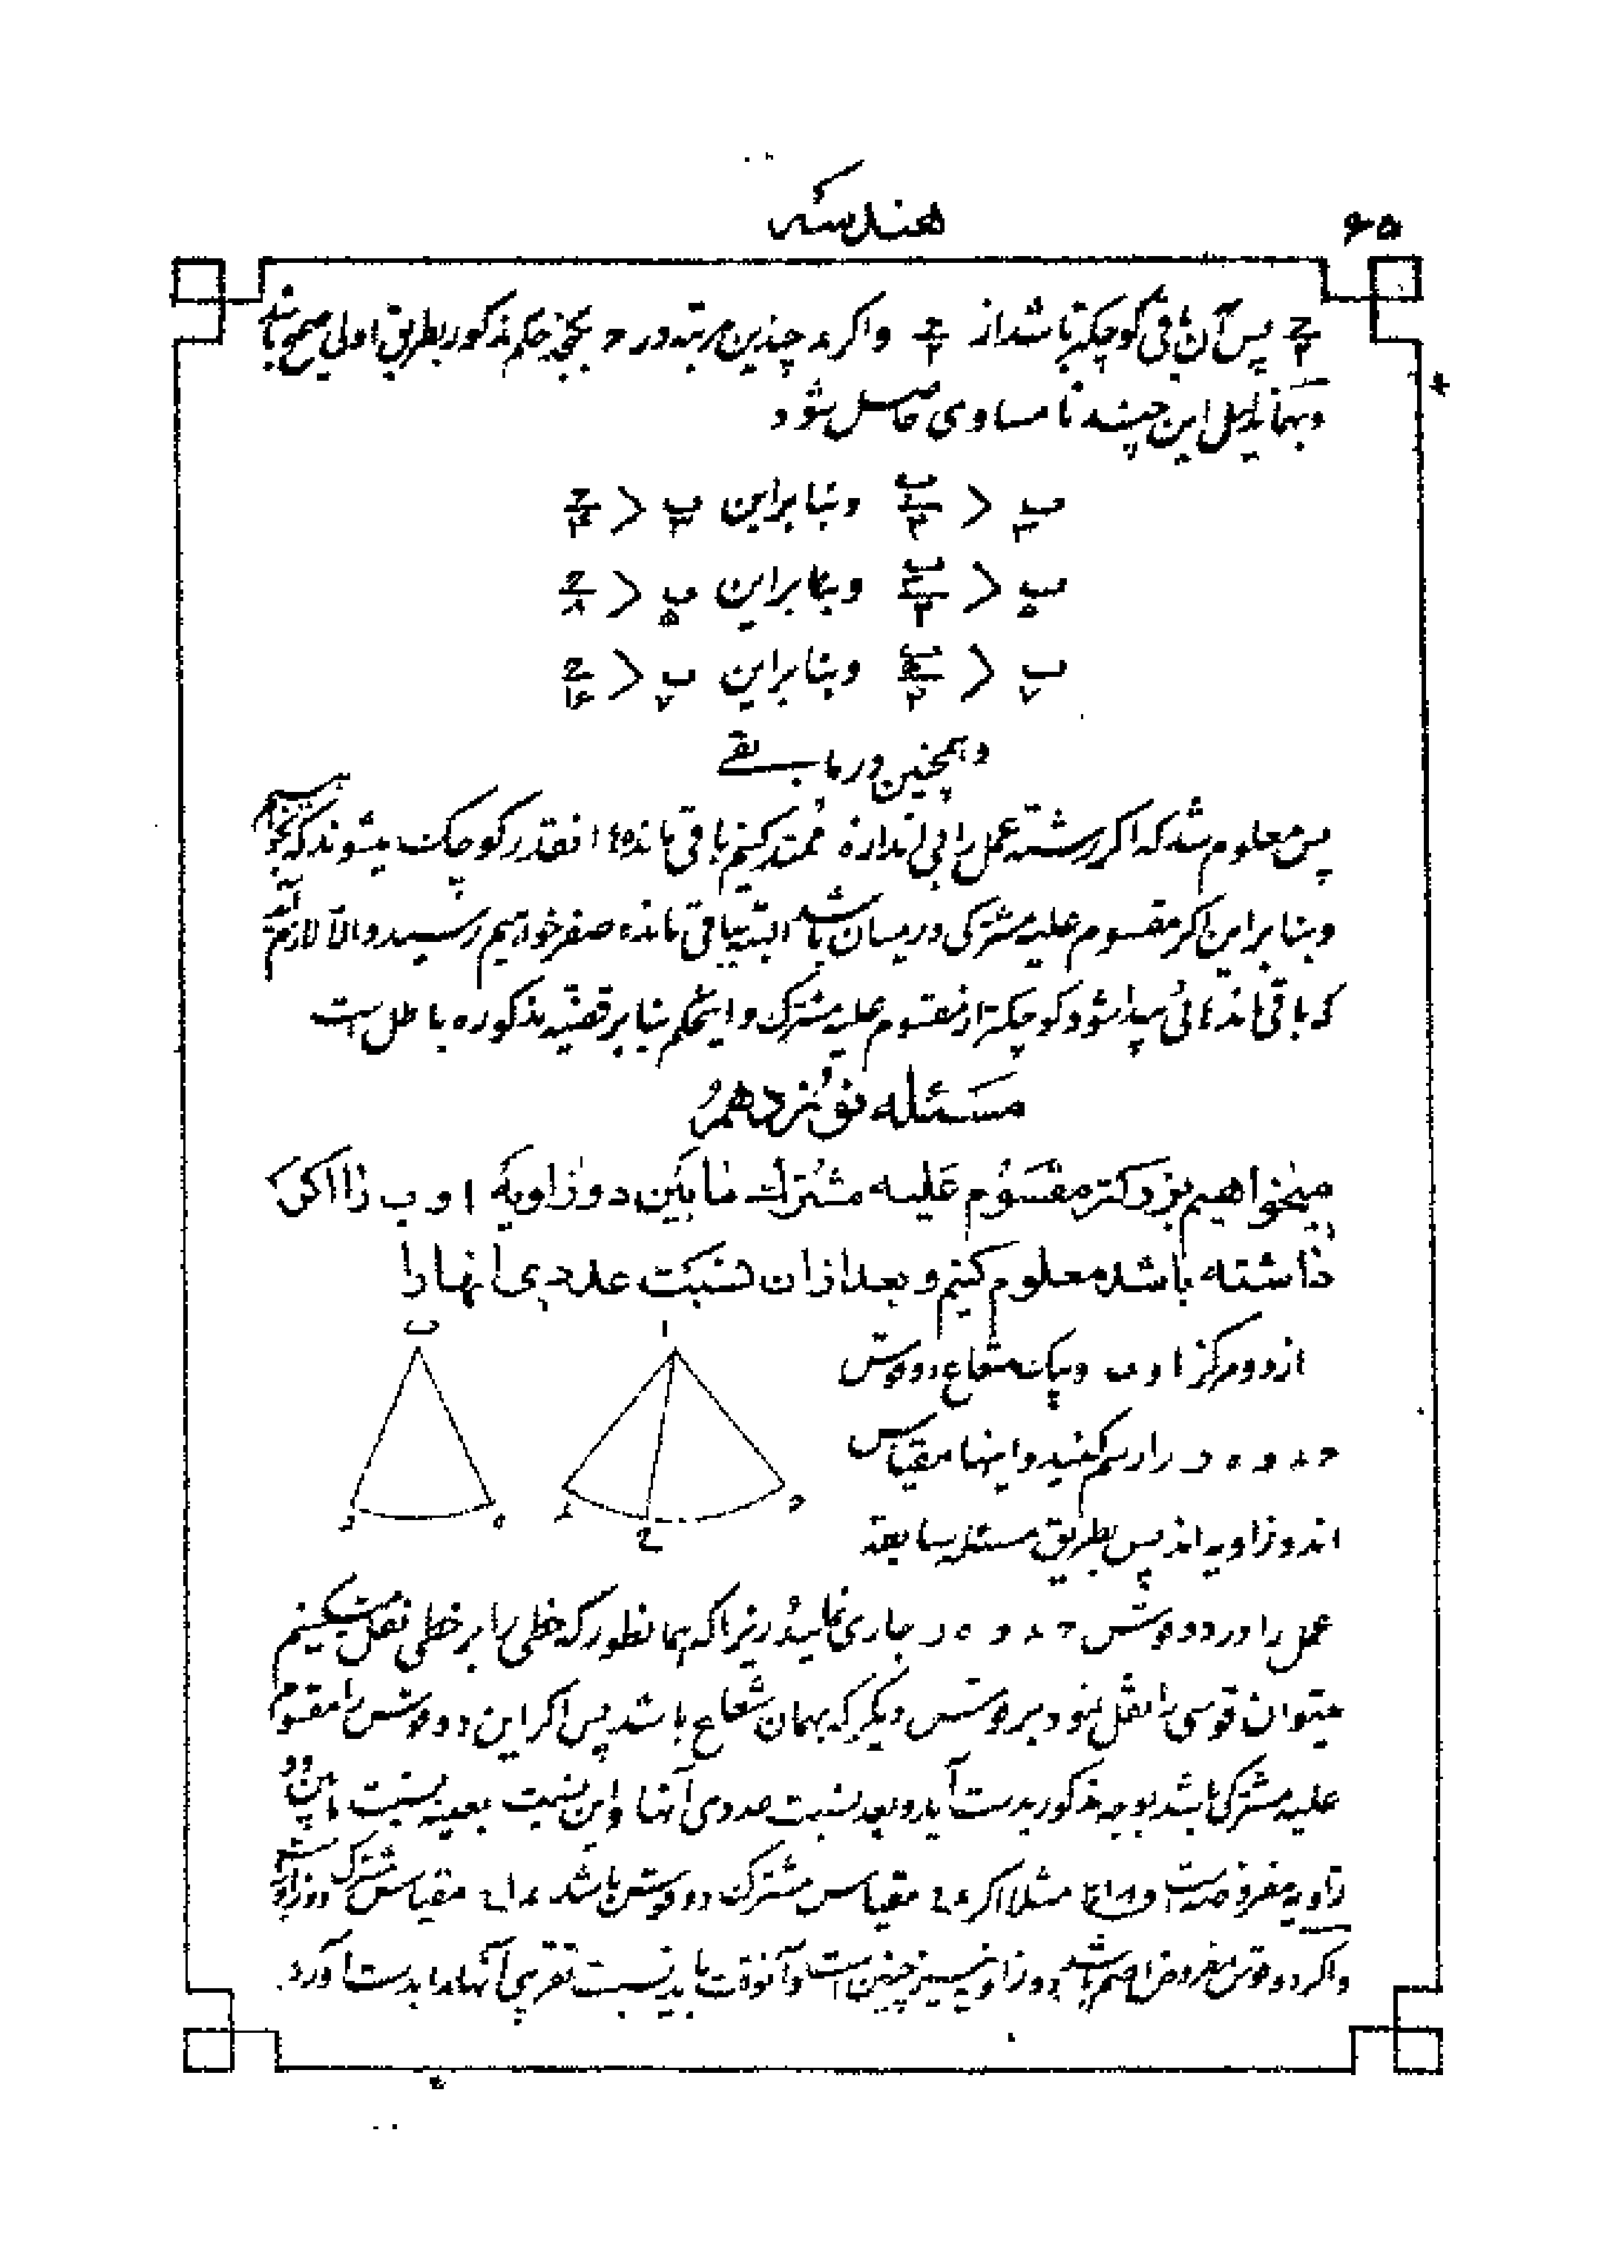 ۶۵
هندسه
ح/۲ پس آن باقی کوچکتر باشد از ح/۲ واکر ء چندین مرتبه در ح بکنجد حکم مذکور بطریق اولی صحیح باشد
و بهمان دلیل این چند نامساوی حاصل شود
و بنابراین
و بنابراین
و بنابراین
و همچنین در مابقے
پس معلوم شد که اکر رشته عمل را بی اندازه ممتد کنیم باقی مانده‌ها انقدر کوچک میشوند که بخواهیم
و بنابراین اکر مقسوم علیه مشترکی در میان باشد البته بباقی مانده صفر خواهیم رسید و الا لازم آید
که باقی مانده‌ئی پیدا شود کوچکتر از مقسوم علیه مشترک و اینحکم بنابر قضیه مذکوره باطل است
مسئله نوزدهم
میخواهیم بزرکتر مقسوم علیه مشترک مابین دو زاویه ا و ب را اکر
داشته باشد معلوم کنیم و بعد از ان نسبت عددی انها را
ب ا
از دو مرکز ا و ب و بیک شعاع دو قوس
ح ء و ه ر را رسم کنید و اینها مقیاس
ر ه ء ح ح
اندو زاویه اند پس بطریق مسئله سابقه
عمل را در دو قوس ح ء و ه ر جاری نمائید زیرا که همانطور که خطی را بر خطی نقل میکنیم
میتوان قوسی را نقل نمود بر قوس دیکر که بهمان شعاع باشد پس اکر این دو قوس را مقسوم
علیه مشترکی باشد بوجه مذکور بدست آید و بعد نسبت عددی آنها و این نسبت بعینه نسبت مابین دو
زاویه مفروضست مثلا اکر مقیاس مشترک دو قوس باشد مقیاس مشترک دو زاویه است
واکر دو قوس مفروض اصم باشد دو زاویه نیز چنین است و آنوقت باید نسبت تقریبی آنها را بدست آورد